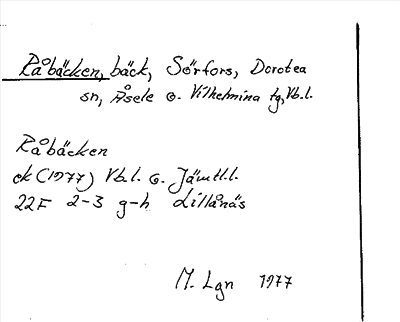 Råbäcken, bäck, Sörfors, Dorotea
sn, Åsele o. Vilhelmina tg, Vb.l.
Råbäcken
ek (1977) Vb.l. o. Jämtl.l.
22F 2-3 g-h Lillånäs
M. Lgn 1977